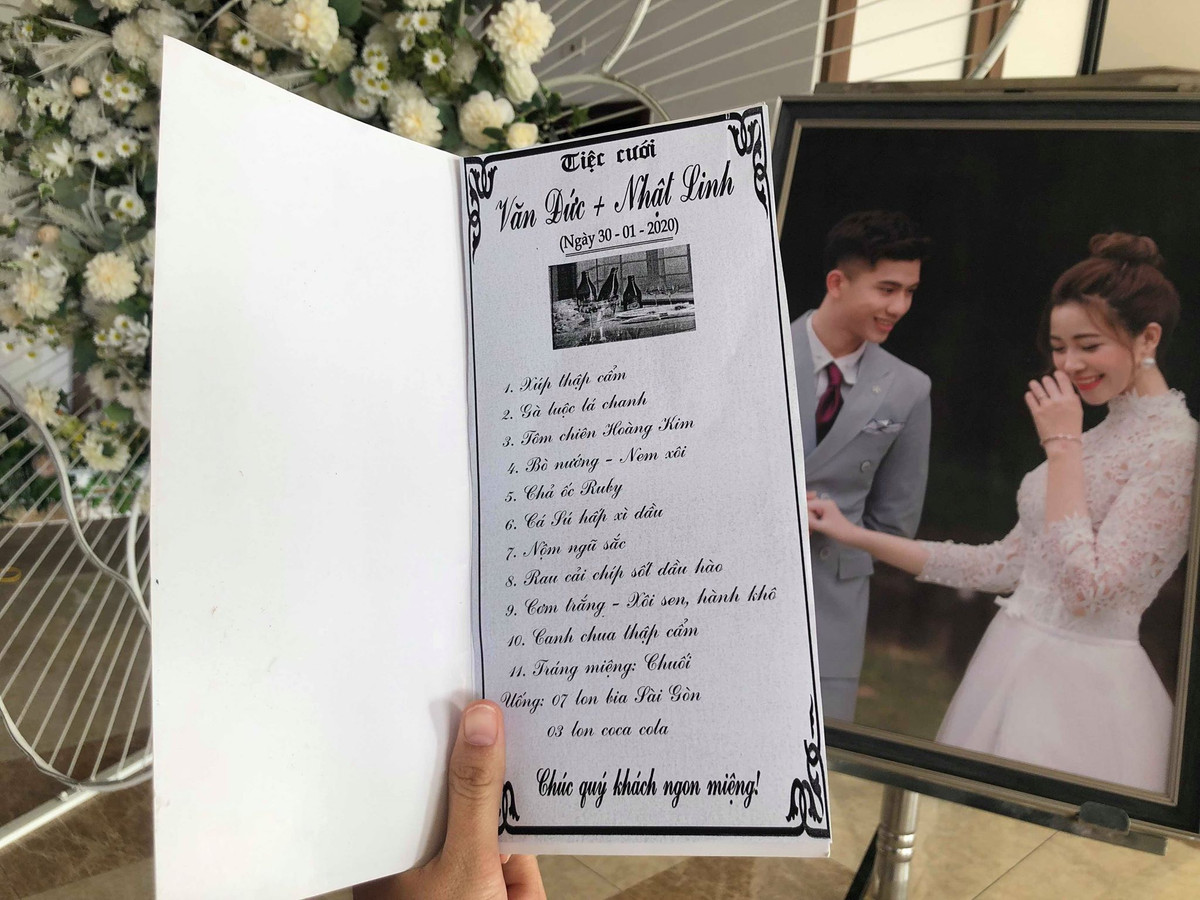 Tiệc cưới
Văn Đức + Nhật Linh
(Ngày 30 - 01 - 2020)
1. Xúp thập cẩm
2. Gà luộc lá chanh
3. Tôm chiên Hoàng Kim
4. Bò nướng - Nem xôi
5. Chả ốc Ruby
6. Cá Sú hấp xì dầu
7. Nộm ngũ sắc
8. Rau cải chíp sốt dầu hào
9. Cơm trắng - Xôi sen, hành khô
10. Canh chua thập cẩm
11. Tráng miệng: Chuối
Uống: 07 lon bia Sài Gòn
03 lon coca cola
Chúc quý khách ngon miệng!